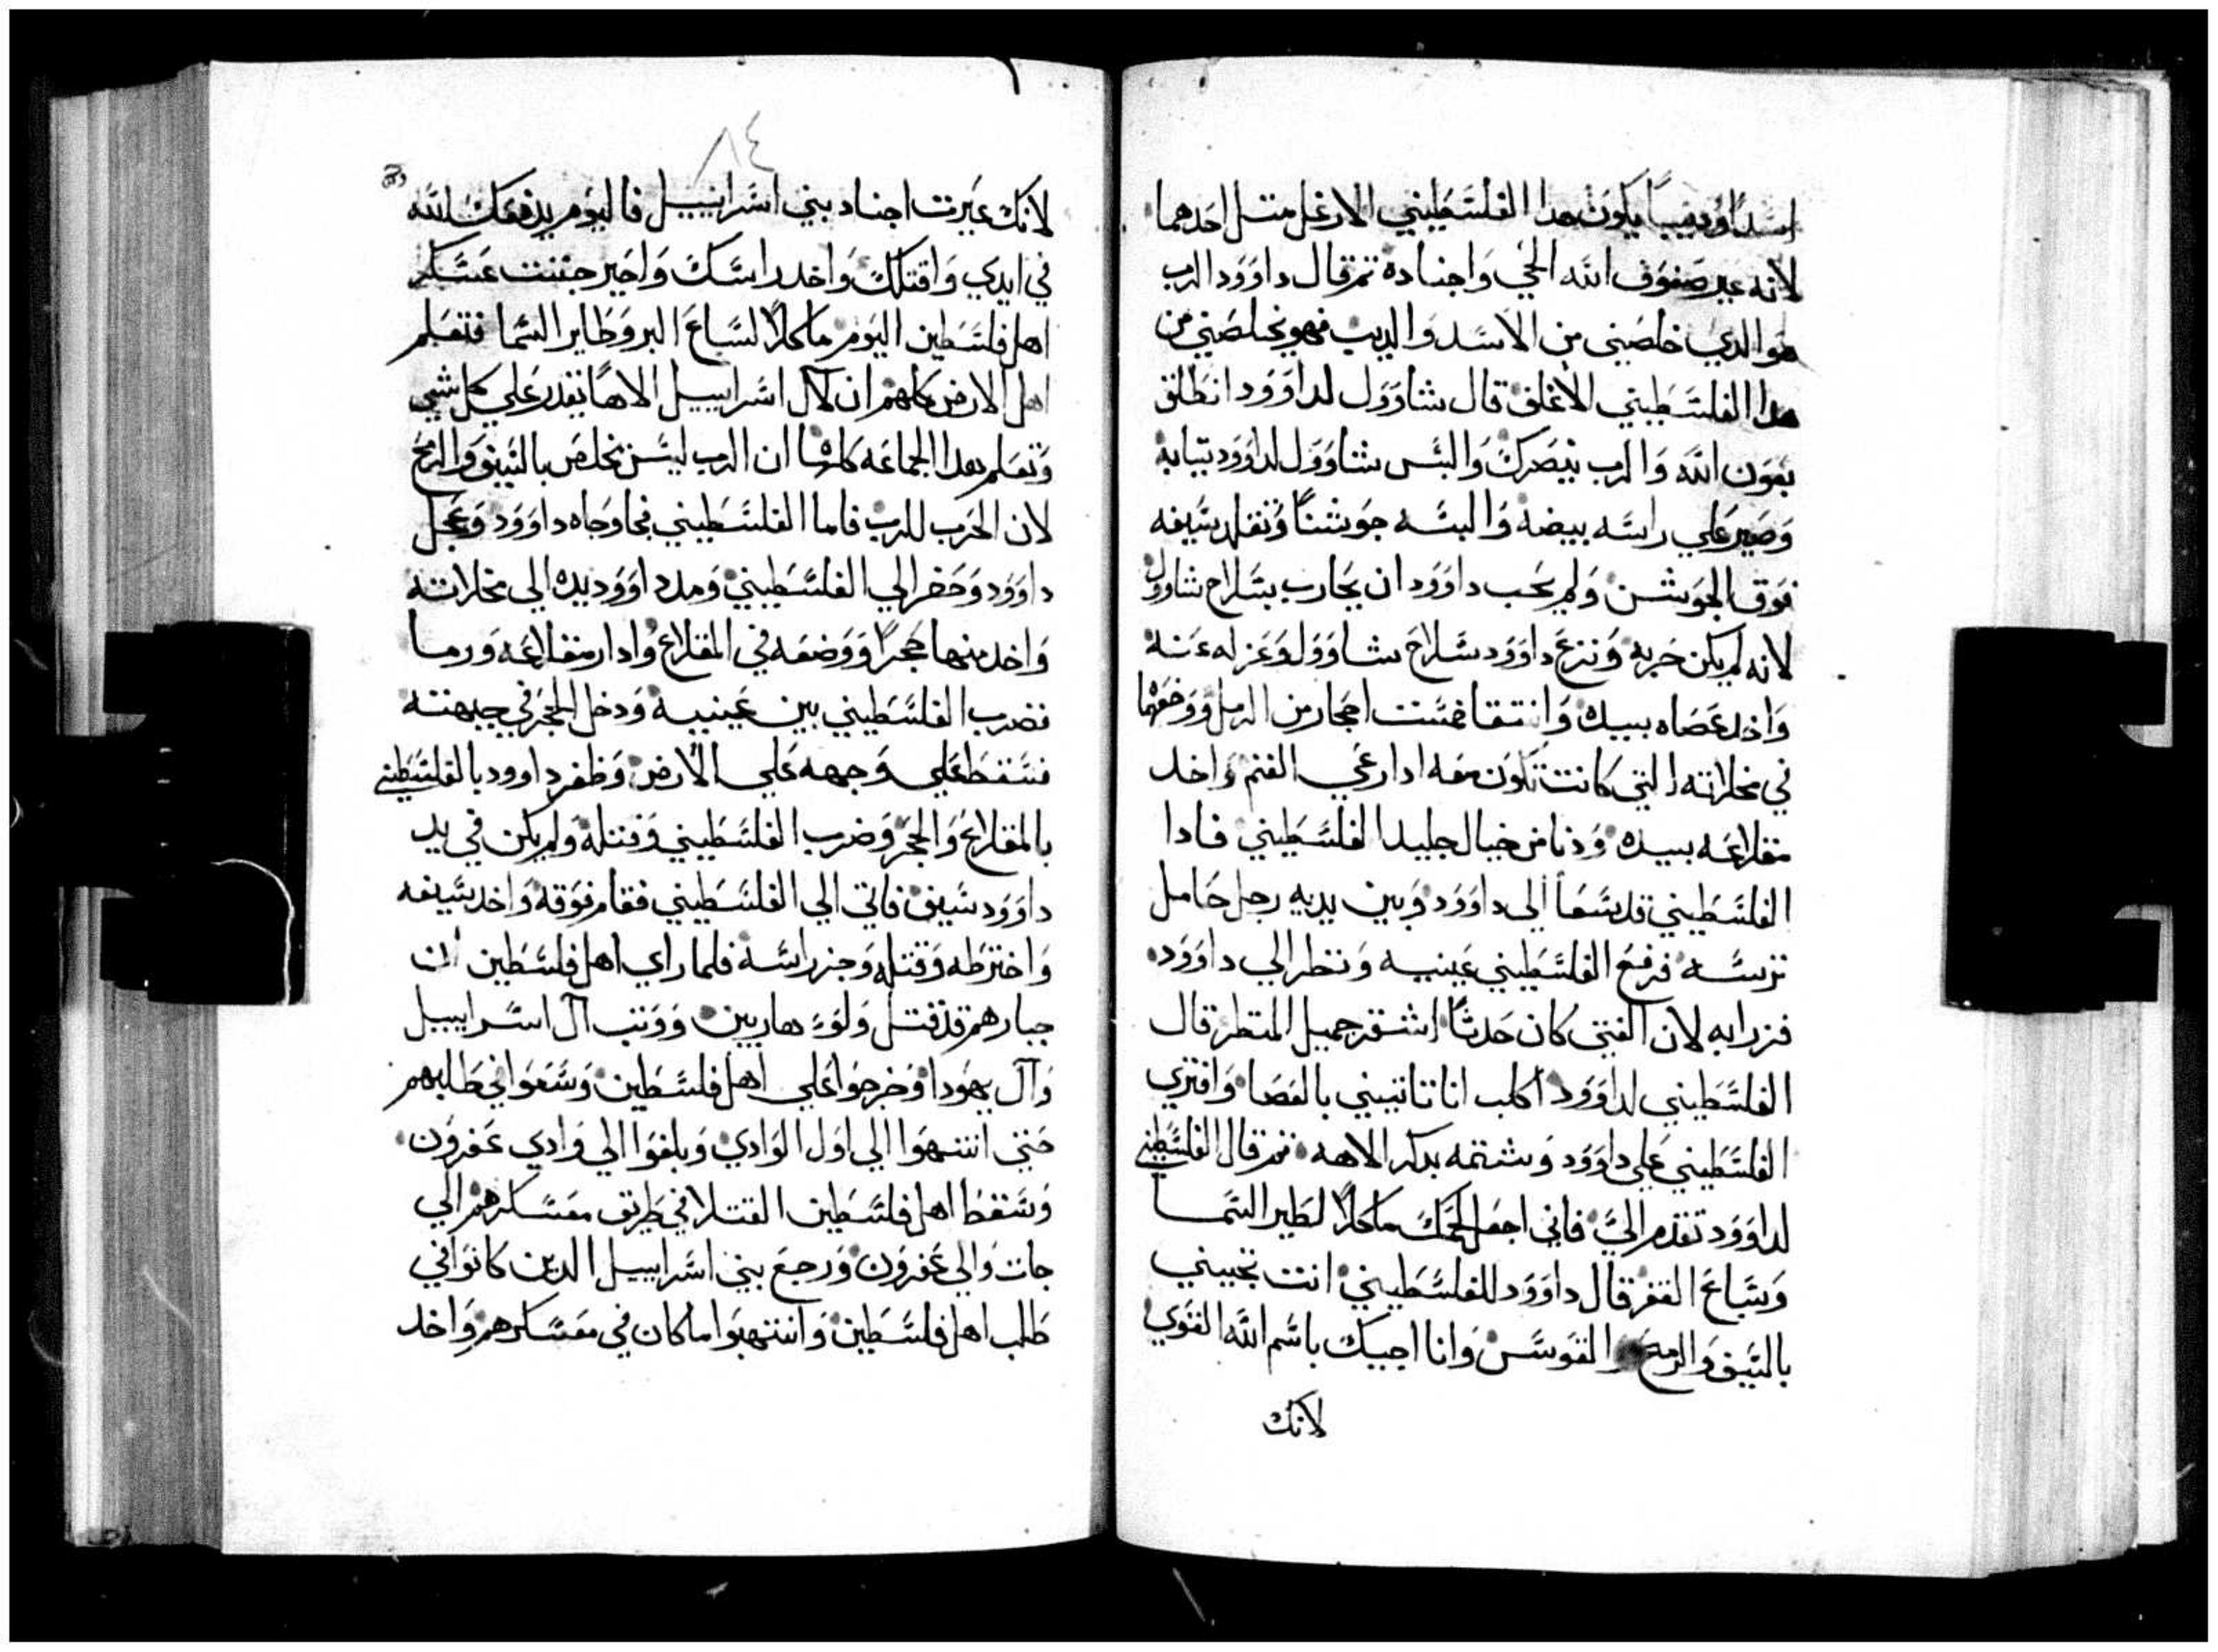 اسدا وديبا يكون هدا الفلسطيني الارغل متل احدهما
لانه عير صفوف الله الحي واجناده تم قال داوود الرب
هو الدي خلصني من الاسد والديب فهو يخلصني من
هدا الفلسطيني الاغلف قال شاوول لداوود انطلق
بعون الله والرب ينصرك والبس شاوول لداوود تيابه
وصير علي راسه بيضه والبسه جوشنا وتقلد سيفه
فوق الجوشن ولم يحب داوود ان يحارب بسلاح شاوول
لانه لم يكن جربه ونزع داوود سلاح شاوول وعزله عنه
واخد عصاه بيده وانتقا خمست احجار من الرمل ووضعها
في مخلاته التي كانت تكون معه ادا رعي الغنم واخد
مقلاعه بيده ودنا من خيال جليد الفلسطيني فادا
الفلسطيني قد سعا الي داوود وبين يديه رجل حامل
ترسه فرفع الفلسطيني عينيه ونظر الي داوود
فزرا به لان الفتي كان حدثا اشقر جميل المنظر قال
الفلسطيني لداوود اكلب انا تاتيني بالعصا وافتري
الفلسطيني علي داوود وشتمه بدكر الاهه تم قال الفلسطيني
لداوود تقدم الي فاني اجعل لحمك ماكلا لطير السما
وسباع القفر قال داوود للفلسطيني انت تجيني
بالسيف والرمح والقوس وانا اجيك باسم الله القوي
لانك
٨٤
لانك عيرت اجناد بني اسراييل فاليوم يدفعك الله
في ايدي واقتلك واخد راسك واصير جتت عسكر
اهل فلسطين اليوم ماكلا لسباع البر وطاير السما فتعلم
اهل الارض كلهم ان لال اسراييل الاها يقدر علي كل شي
وتعلم هدا الجماعه كلها ان الرب ليس يخلص بالسيف والرمح
لان الحرب للرب فاما الفلسطيني فجا وجاه داوود وعجل
داوود وحضر الي الفلسطيني ومد داوود يده الي مخلاته
واخد منها حجرا ووضعه في المقلاع وادار مقلاعه ورما
فضرب الفلسطيني بين عينيه ودخل الحجر في جبهته
فسقط علي وجهه علي الارض وظفر داوود بالفلسطيني
بالمقلاع والحجر وضرب الفلسطيني وقتله ولم يكن في يد
داوود سيف فاتي الي الفلسطيني فقام فوقه واخد سيفه
واخترطه وقتله وجز راسه فلما راي اهل فلسطين ان
جبارهم قد قتل ولو هاربين ووتب ال اسراييل
وال يهودا وخرجوا علي اهل فلسطين وسعوا في طلبهم
حتي انتهوا الي اول الوادي وبلغوا الي وادي عفرون
وسقط اهل فلسطين القتلا في طريق معسكرهم الي
جات والي عفرون ورجع بني اسراييل الدين كانوا في
طلب اهل فلسطين وانتهبوا ما كان في معسكرهم واخد